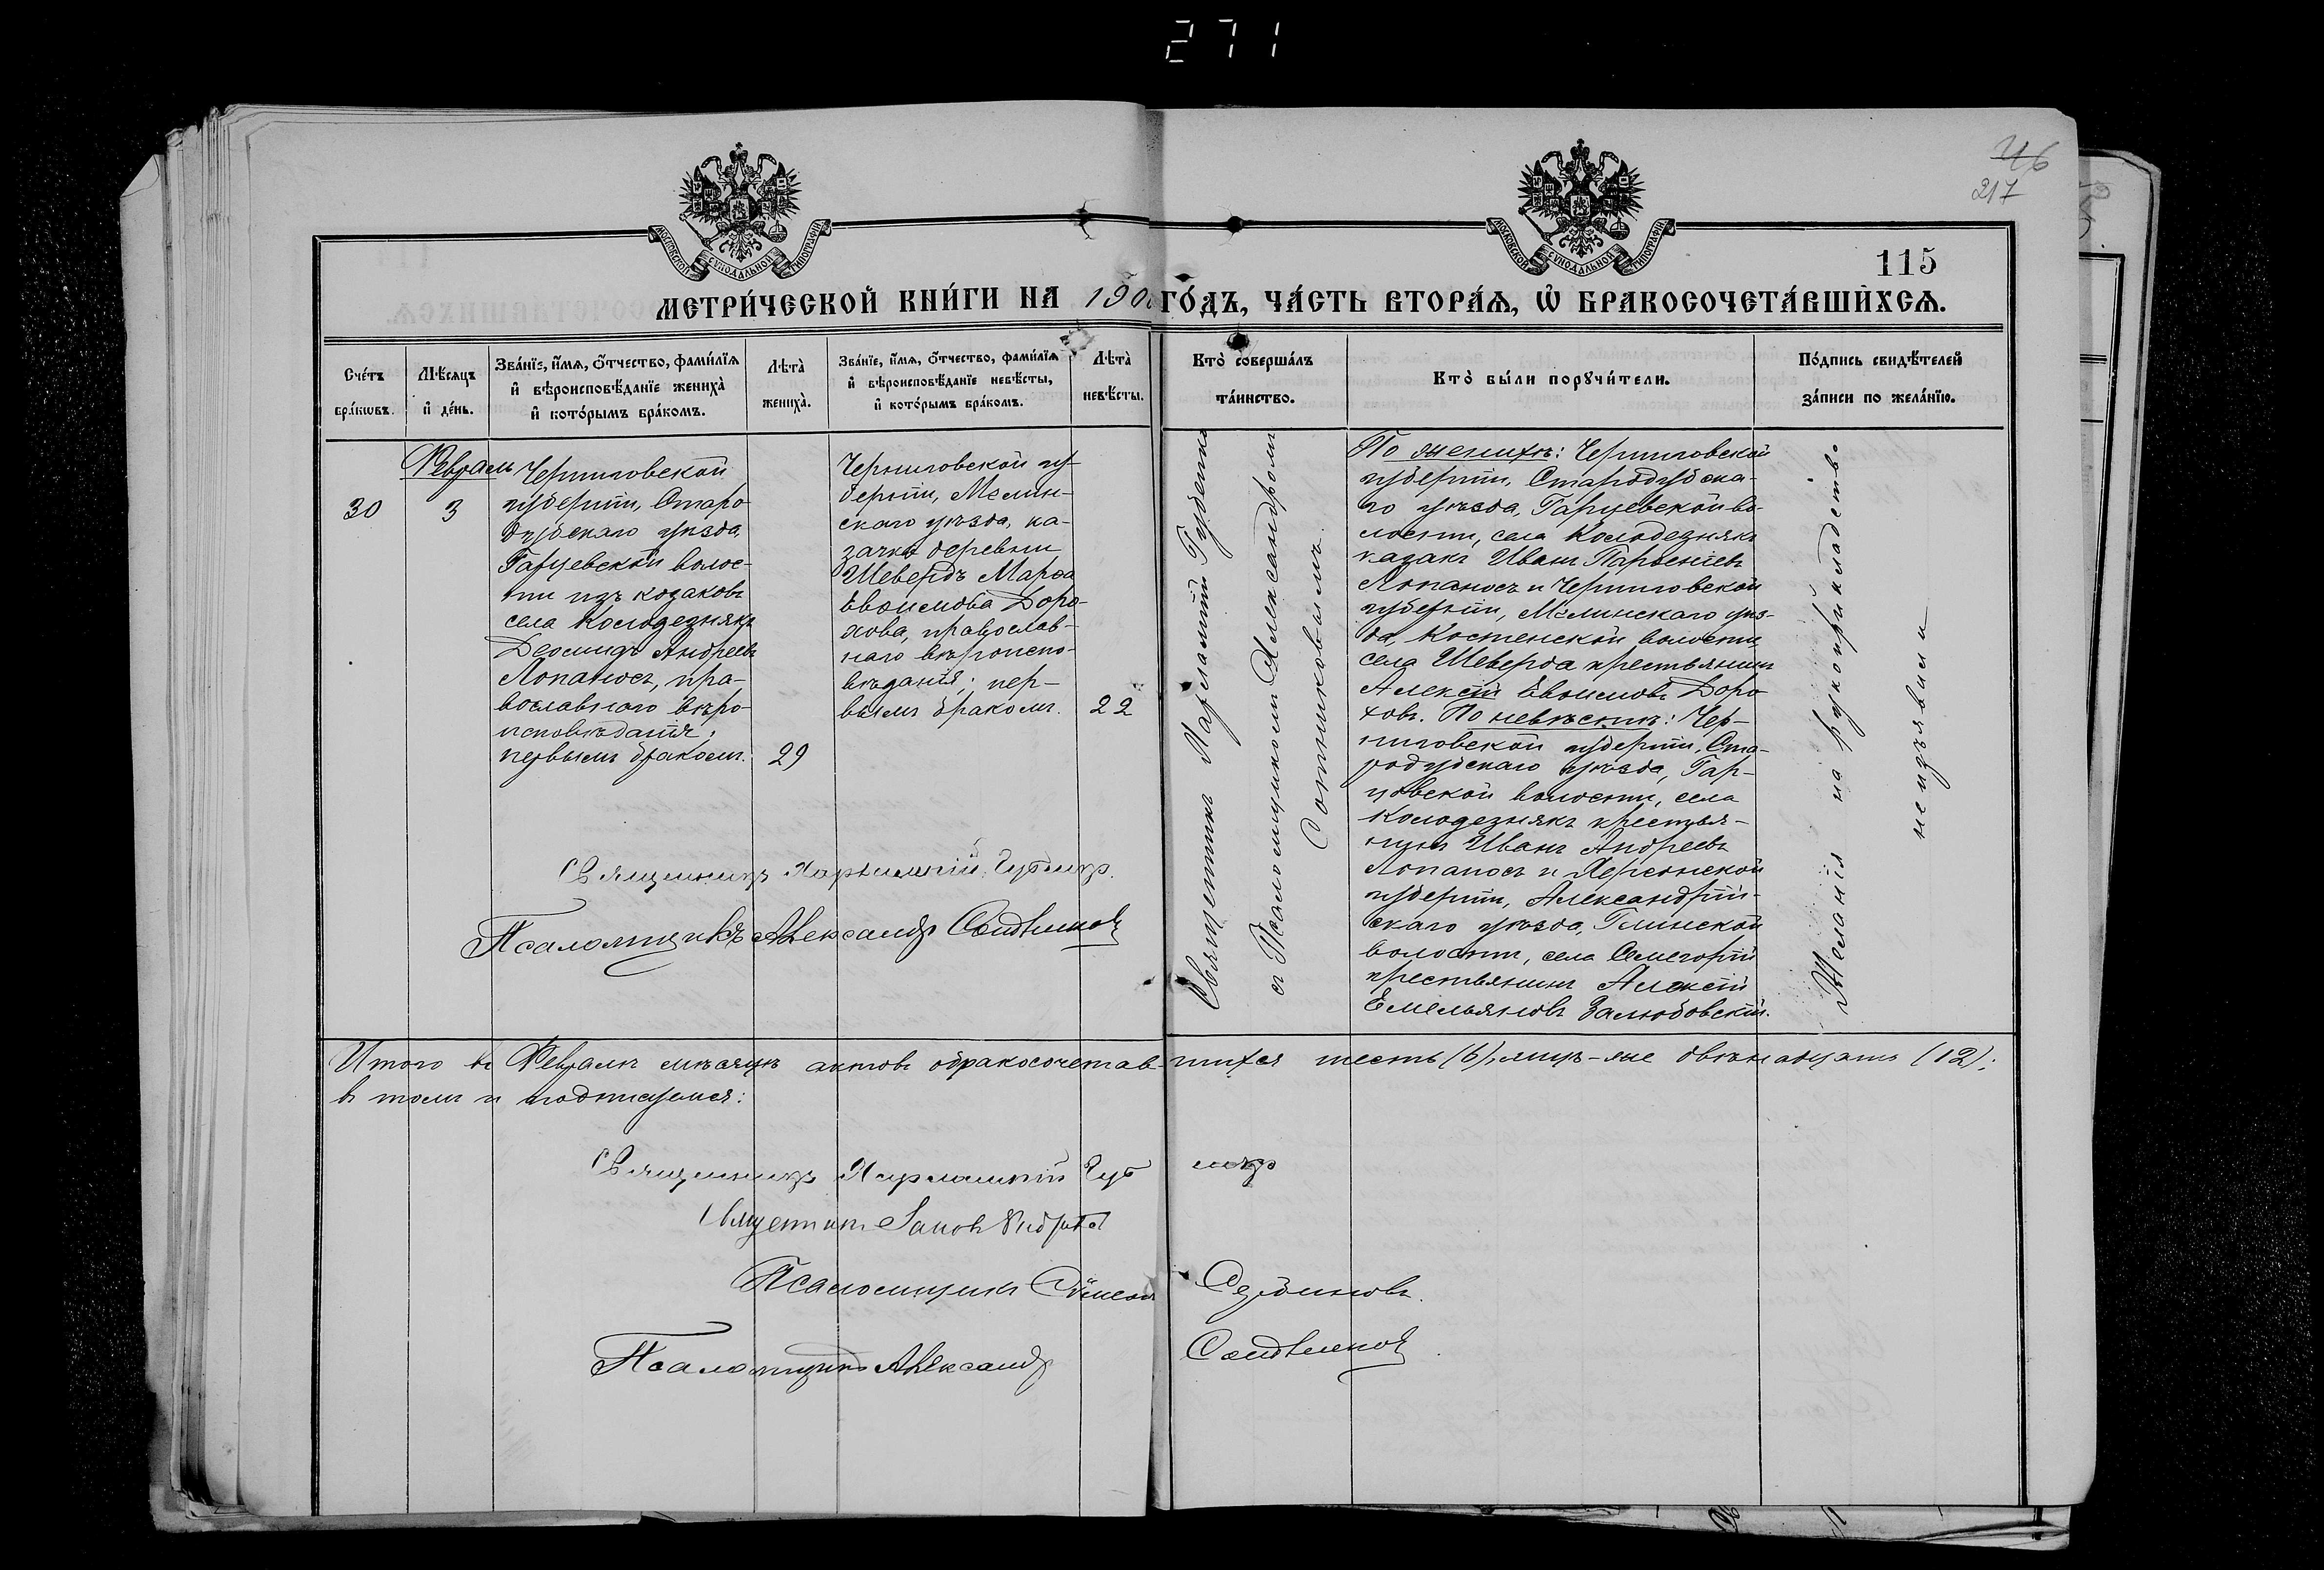 271
46
217
115
МОСКОВСКОЙ СѴНОДАЛЬНОЙ ТИПОГРАФІИ
МОСКОВСКОЙ СѴНОДАЛЬНОЙ ТИПОГРАФІИ
МЕТРИ́ЧЕСКОЙ КНИ́ГИ НА 190 ГО́ДЪ, ЧА́СТЬ ВТОРА́Ѧ, Ѡ҆ БРАКОСОЧЕТА́ВШИХСѦ.
Сче́тъ
бра́кѡвъ.
Мѣ́сяцъ
и҆ де́нь.
Зва́нїе, и҆́мѧ, ѻ҆́тчество, фами́лїѧ
и҆ вѣроисповѣ́данїе жениха̀
и҆ кото́рымъ бра́комъ.
Лѣта̀
жениха̀.
Зва́нїе, и҆́мѧ, ѻ҆́тчество, фами́лїѧ
и҆ вѣроисповѣ́данїе невѣ́сты,
и҆ кото́рымъ бра́комъ.
Лѣта̀
невѣ́сты.
Кто̀ соверша́лъ
та́инство.
Кто̀ бы́ли порꙋчи́тели.
По́дпись свидѣ́телей
за́писи по жела́нїю.
Февраль
30
3
Черниговской
губерніи, Старо
дубскаго уѣзда,
Гарцевской волос-
ти изъ козаковъ
села Колодезнякъ
Деомидъ Андреевъ
Лопаносъ, пра-
вославнаго вѣро
исповѣданія;
первымъ бракомъ.
29
Черниговской гу-
берніи, Мглин-
скаго уѣзда, ка-
зачка деревни
Шевердъ Марѳа
Евѳимова Доро-
хова, православ-
наго вѣроиспо-
вѣданія; пер-
вымъ бракомъ.
22
Священникъ Харлампій Губенко
съ Псаломщикомъ Александромъ
Сотниковымъ.
По женихѣ: Черниговской
губерніи, Стародубска-
го уѣзда, Гарцевской во-
лости, села Колодезнякъ
казакъ Иванъ Парѳеніевъ
Лопаносъ и Черниговской
губерніи, Мглинскаго уѣз-
да, Костенской волости,
села Шеверда крестьянинъ
Алексій Евѳимовъ Доро
ховъ. По невѣстѣ: Чер-
ниговской губерніи, Ста-
родубскаго уѣзда, Гар-
цовской волости, села
Колодезнякъ крестья-
нинъ Иванъ Андреевъ
Лопаносъ и Херсонской
губерніи, Александрій-
скаго уѣзда, Глинской
волости, села Семегорій
крестьянинъ Алексій
Емельяновъ Залюбовскій.
Желанія на рукоприкладство
не изъявили
Священникъ Харлампій
Псаломщикъ Александръ Сотниковъ
Итого въ Февралѣ мѣсяцѣ актовъ бракосочетав-шихся шесть (6), лицъ-же двѣнадцать (12);
въ томъ и подписуемся:
Священникъ Харлампій
Священникъ
Псаломщикъ Симеонъ Сербиновъ.
Псаломщикъ Александръ Сотниковъ